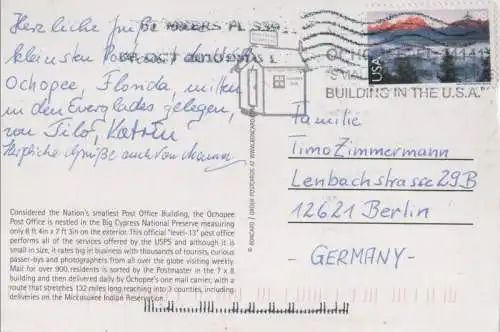 Herzliche Grüße aus dem
kleinsten Post
Ochopee, Florida, mitten
in den Everglades gelegen,
von Tilo, Katrin
Herzliche Grüße auch von
FT MYERS FL 339
OCT 2010 PM 1
OCHOPEE FL 34141
"SMALLEST
BUILDING IN THE U.S.A."
USA
Familie
Timo Zimmermann
Lenbachstrasse 29B
12621 Berlin
- GERMANY -
Considered the Nation's smallest Post Office Building, the Ochopee
Post Office is nestled in the Big Cypress National Preserve measuring
only 8 ft 4in x 7 ft 3in on the exterior. This official "level-13" post office
performs all of the services offered by the USPS and although it is
small in size, it rates big in business with thousands of tourists, curious
passer-bys and photographers from all over the globe visiting weekly.
Mail for over 900 residents is sorted by the Postmaster in the 7 x 8
building and then delivered daily by Ochopee's one mail carrier, with a
route that stretches 132 miles long reaching into 3 counties, including
deliveries on the Miccosukee Indian Reservation.